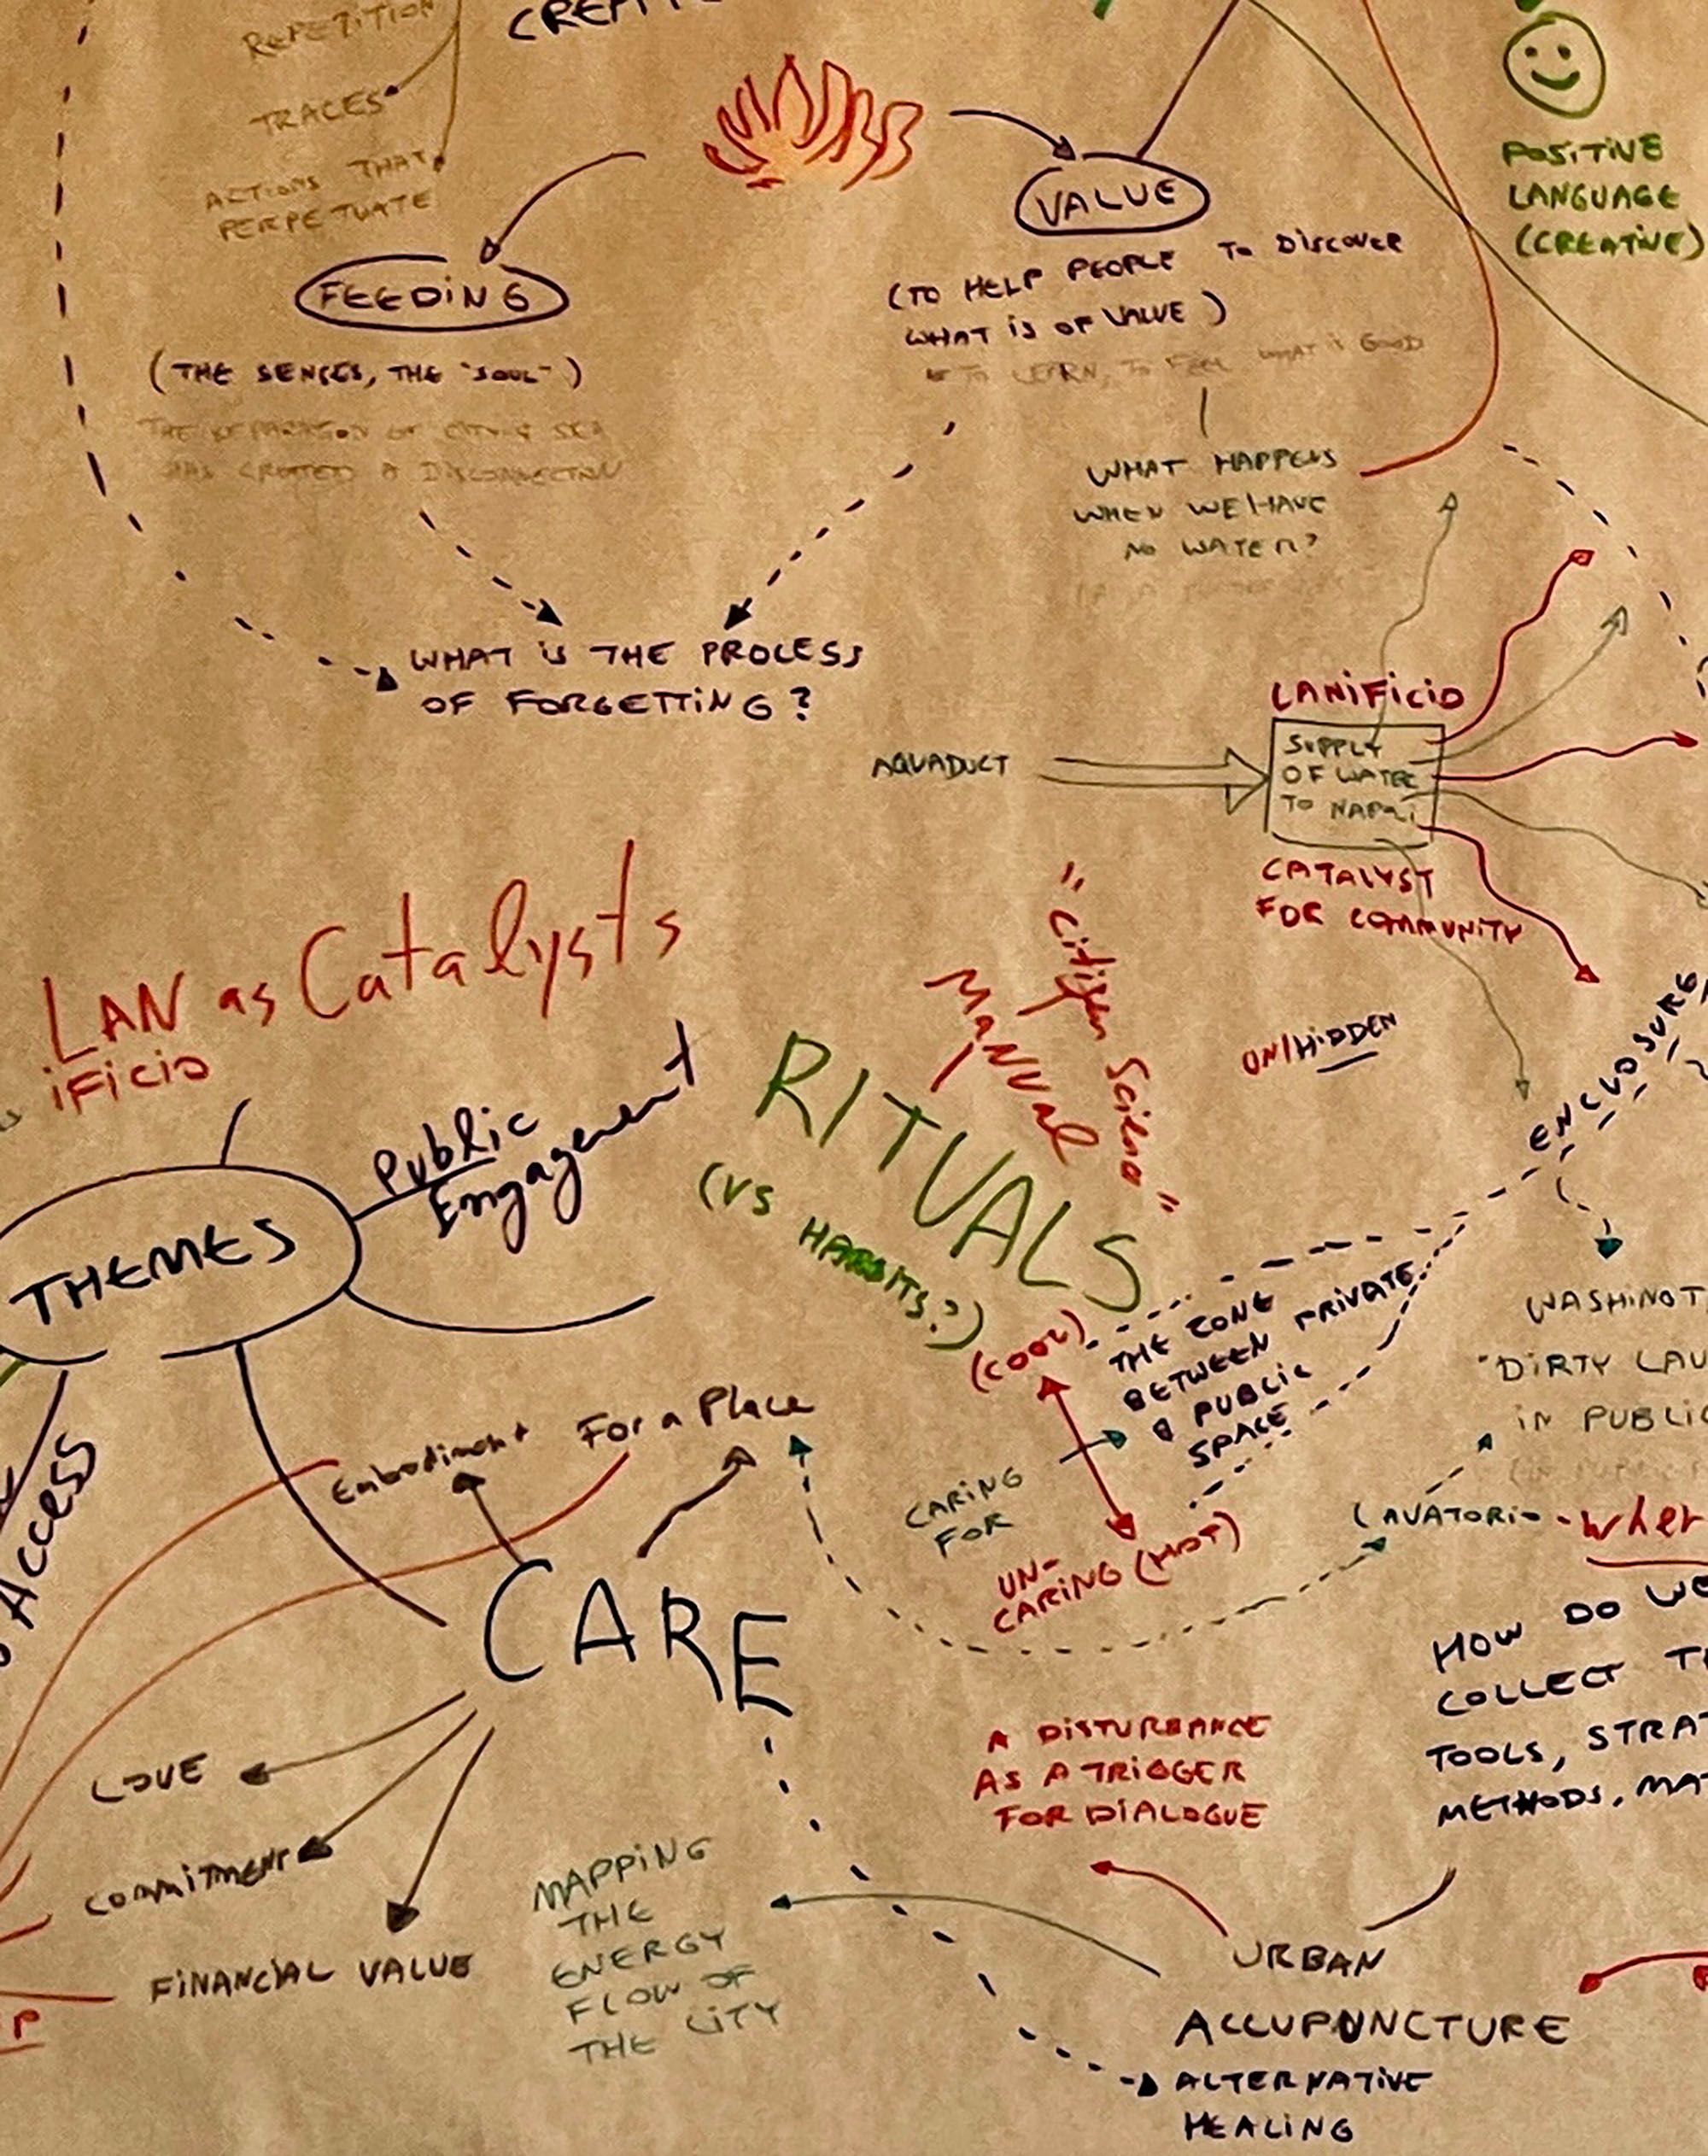 REPETITION
TRACES
ACTIONS THAT
PERPETUATE
FEEDING
(THE SENSES, THE "SOUL")
THE SEPARATION OF CITY & SEA
HAS CREATED A DISCONNECTION
VALUE
(TO HELP PEOPLE TO DISCOVER
WHAT IS OF VALUE)
TO LEARN, TO FEEL WHAT IS GOOD
WHAT HAPPENS
WHEN WE HAVE
NO WATER?
POSITIVE
LANGUAGE
(CREATIVE)
WHAT IS THE PROCESS
OF FORGETTING?
AQUADUCT
LANIFICIO
SUPPLY
OF WATER
TO NAPOLI
CATALYST
FOR COMMUNITY
LAN as Catalysts
iFicio
"Citizen Science"
MANUal
UN/HIDDEN
ENCLOSURE
Public
Engagement
THEMES
RITUALS
(VS HABBITS?)
(COOL)
THE ZONE
BETWEEN PRIVATE
& PUBLIC
SPACE
CARING
FOR
UN-
CARING (HOT)
"DIRTY LAU
IN PUBLIC
LAVATORIO - wher
Embodiment
For a Place
Access
CARE
LOVE
COMMITMENT
FINANCIAL VALUE
HOW DO WE
COLLECT
TOOLS, STRAT
METHODS, MAT
A DISTURBANCE
AS A TRIGGER
FOR DIALOGUE
MAPPING
THE
ENERGY
FLOW OF
THE CITY
URBAN
ACCUPUNCTURE
ALTERNATIVE
HEALING